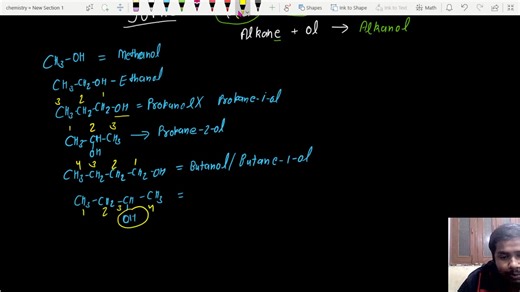 chemistry • New Section 1
Shapes
Alkane + ol → Alkanol
CH3-OH = Methanol
CH3-CH2-OH - Ethanol
3 2 1
CH3-CH2-CH2-OH = Propanol X Propane-1-ol
1 2 3
CH3-CH-CH3 → Propane-2-ol
OH
4 3 2 1
CH3-CH2-CH2-CH2-OH = Butanol/Butane-1-ol
CH3-CH2-CH-CH3 =
1 2 3 4
OH